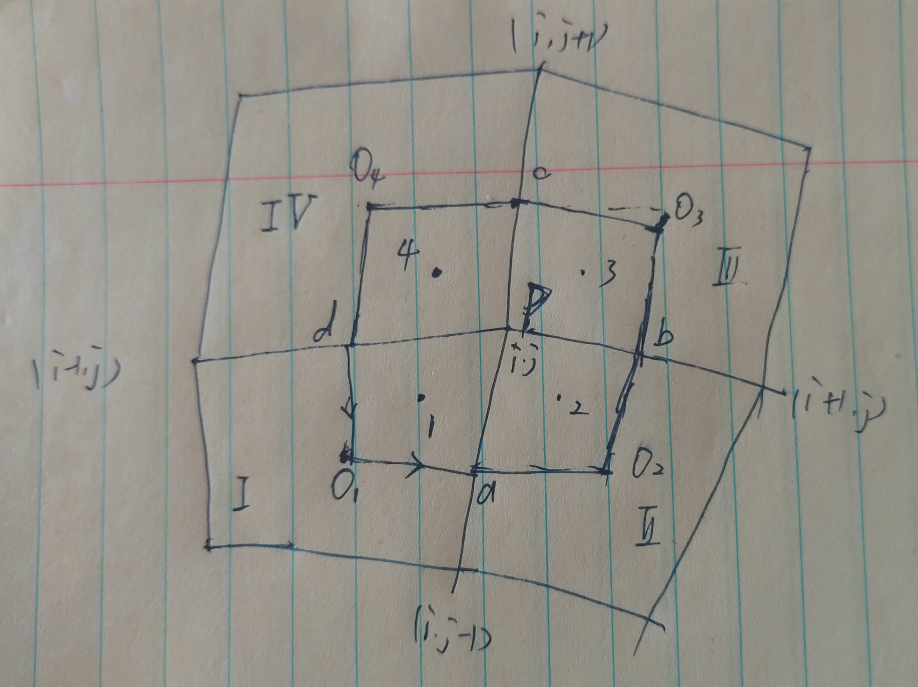 (i,j+1)
O₄
c
O₃
IV
III
4
3
P
d
b
(i+1,j)
i,j
(i+1,j)
1
2
O₁
a
O₂
I
II
(i,j-1)